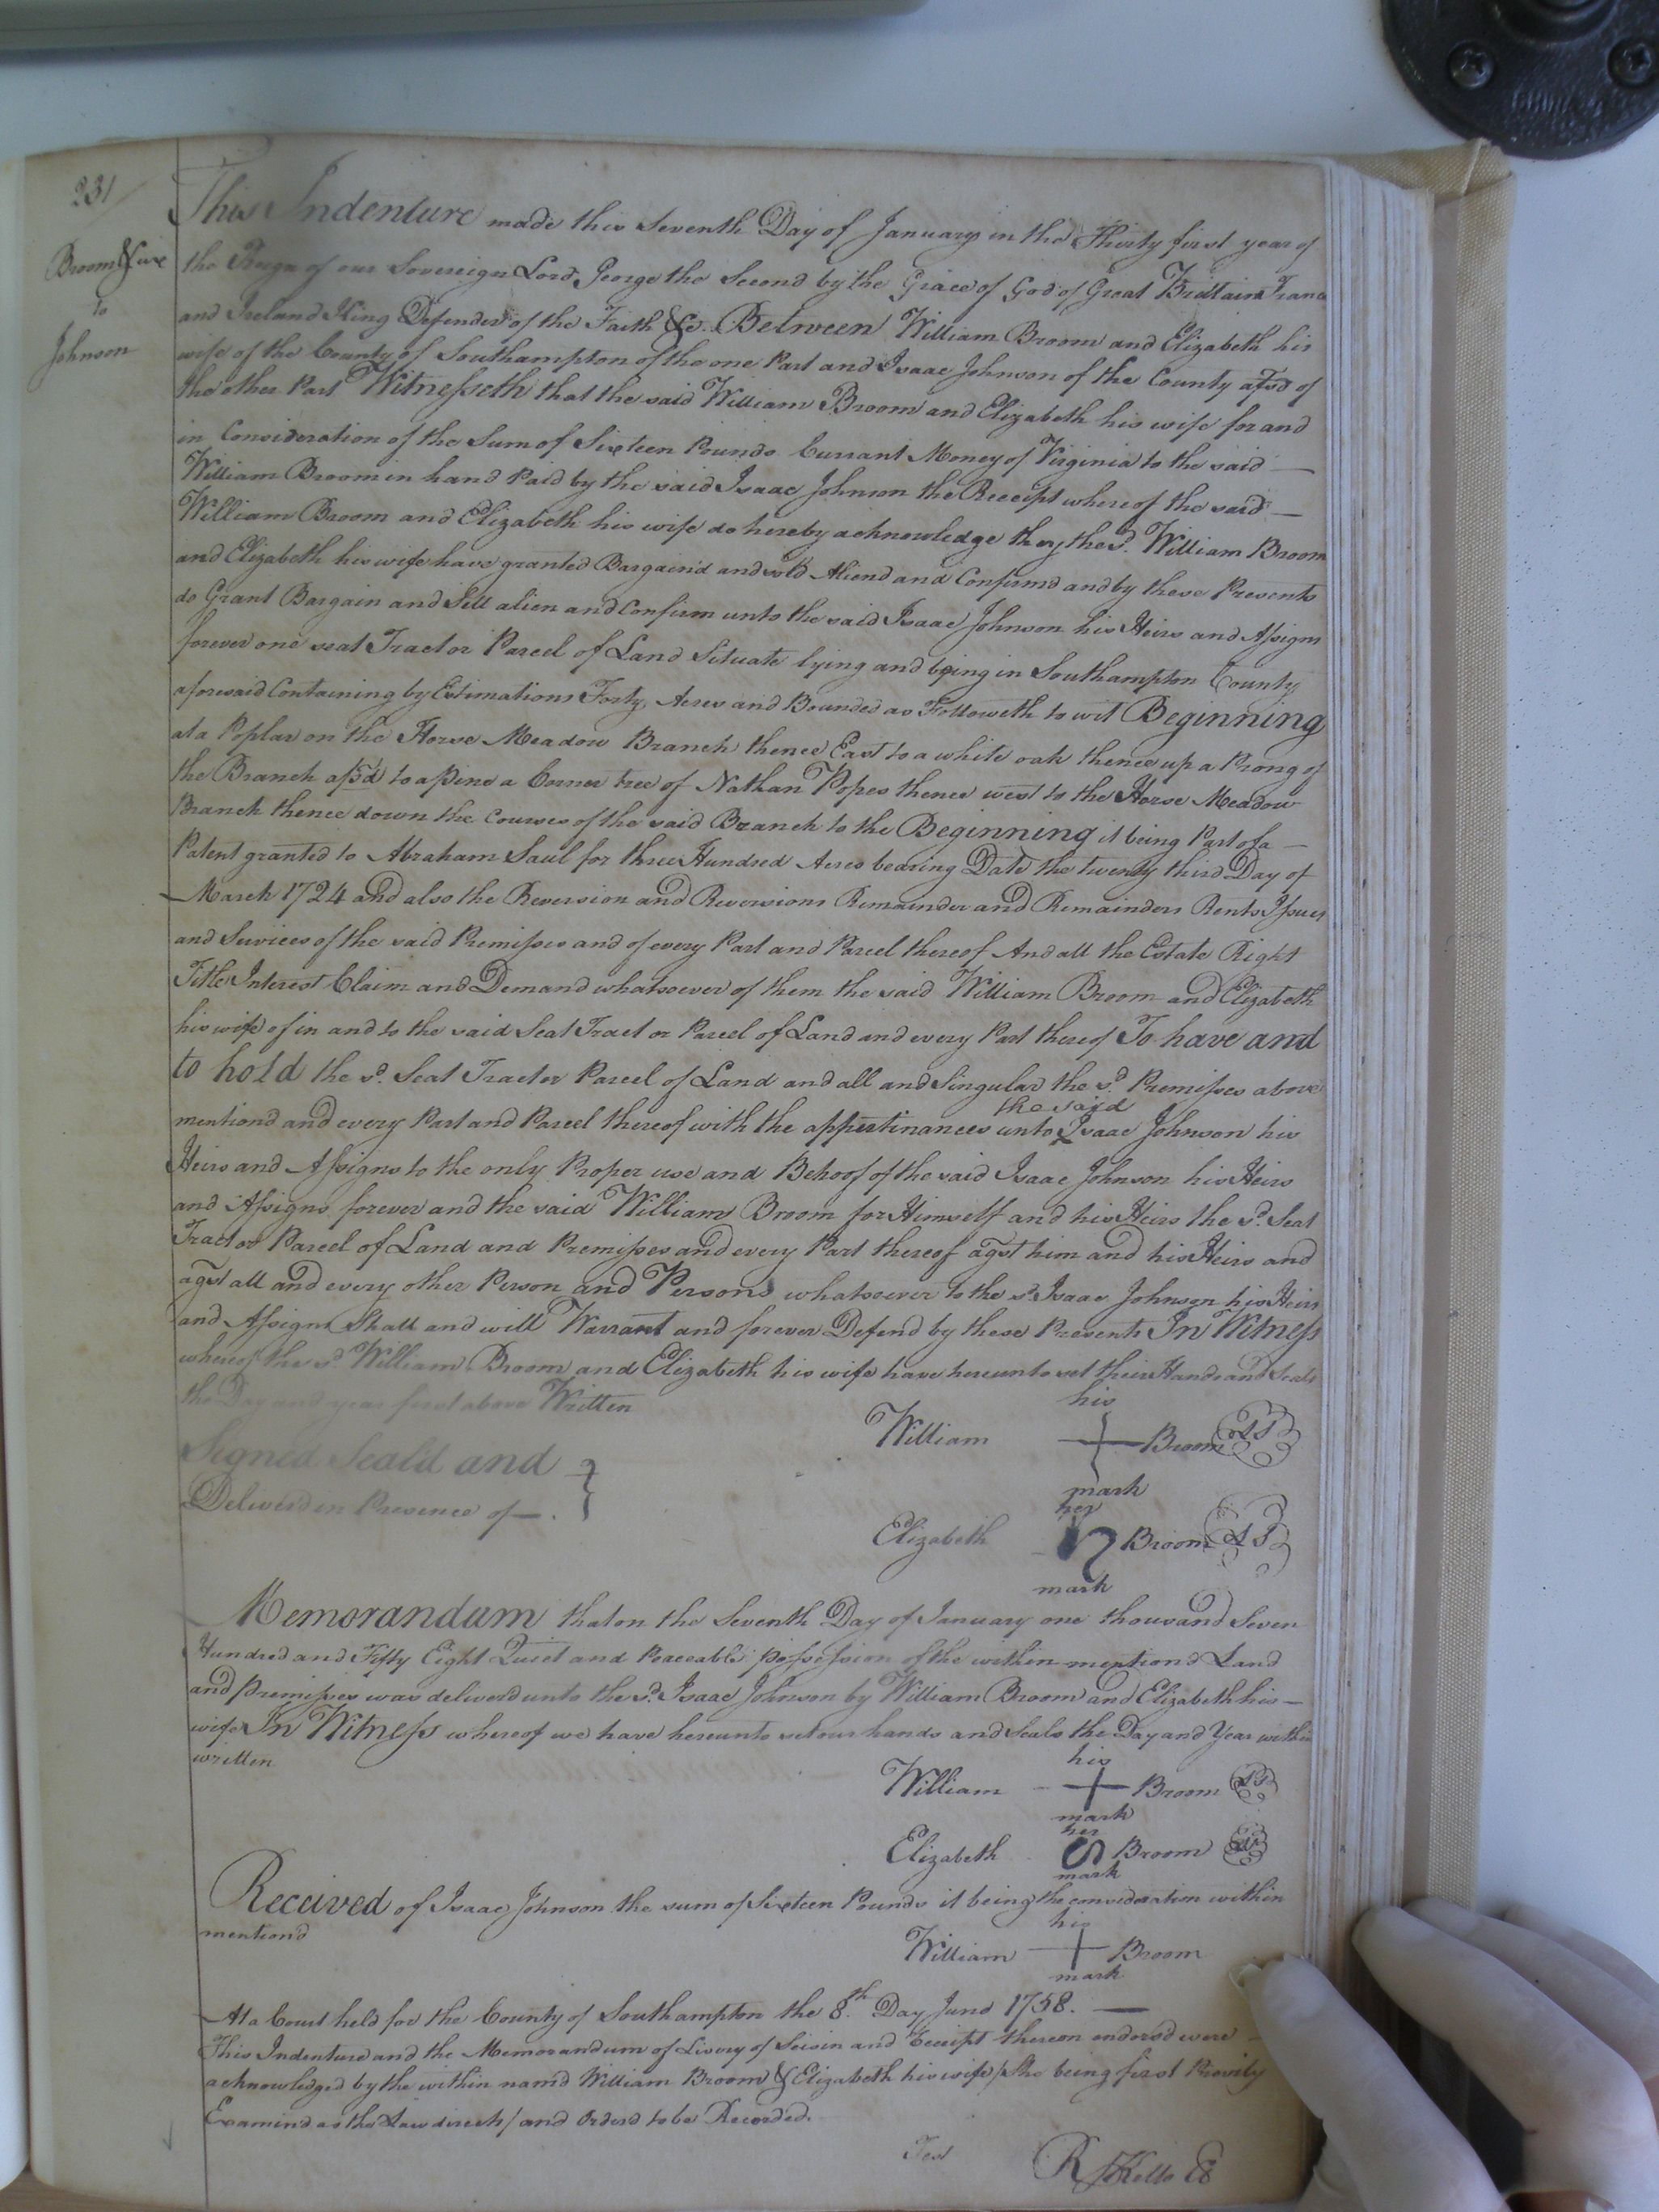 231
Broom & Uxe
to
Johnson
This Indenture made this Seventh Day of January in the Thirty first year of
the Reign of our Sovereign Lord George the Second by the Grace of God of Great Brittain France
and Ireland King Defender of the Faith &c. Between William Broom and Elizabeth his
wife of the County of Southampton of the one Part and Isaac Johnson of the County afsd of
the other Part Witnesseth that the said William Broom and Elizabeth his wife for and
in Consideration of the Sum of Sixteen Pounds Currant Money of Virginia to the said —
William Broom in hand Paid by the said Isaac Johnson the Receipt whereof the said —
William Broom and Elizabeth his wife do hereby acknowledge they the sd. William Broom
and Elizabeth his wife have granted Bargaind and sold Aliend and Confirmd and by these Presents
do Grant Bargain and Sell alien and Confirm unto the said Isaac Johnson his Heirs and Assigns
forever one seat Tract or Parcel of Land Situate lying and being in Southampton County
aforesaid Containing by Estimations Forty Acres and Bounded as Followeth to wit Beginning
at a Poplar on the Horse Meadow Branch thence East to a white oak thence up a Prong of
the Branch afsd to a Pine a Corner tree of Nathan Popes thence west to the Horse Meadow
Branch thence down the Courses of the said Branch to the Beginning it being Part of a —
Patent granted to Abraham Saul for three Hundred Acres bearing Date the twenty third Day of
March 1724 and also the Reversion and Reversions Remainder and Remainders Rents Issues
and Services of the said Premisses and of every Part and Parcel thereof And all the Estate Right
Title Interest Claim and Demand whatsoever of them the said William Broom and Elizabeth
his wife of in and to the said Seat Tract or Parcel of Land and every Part thereof To have and
to hold the sd. Seat Tract or Parcel of Land and all and Singular the sd Premisses above
the said
mentiond and every Part and Parcel thereof with the appertinances unto Isaac Johnson his
Heirs and Assigns to the only Proper use and Behoof of the said Isaac Johnson his Heirs
and Assigns forever and the said William Broom for Himself and his Heirs the sd. Seat
Tract or Parcel of Land and Premisses and every Part thereof agst him and his Heirs and
agst all and every other Person and Persons whatsoever to the sd Isaac Johnson his Heirs
and Assigns Shall and will Warrant and forever Defend by these Presents In Witness
whereof the sd William Broom and Elizabeth his wife have hereunto set their Hands and Seals
the Day and year first above Written
his
William + Broom LS
mark
Signed Seal'd and
Deliverd in Presence of —.
her
Elizabeth Broom LS
mark
Memorandum that on the Seventh Day of January one thousand Seven
Hundred and Fifty Eight Quiet and Peaceable possession of the within mentiond Land
and premisses was deliverd unto the sd. Isaac Johnson by William Broom and Elizabeth his —
wife In Witness whereof we have hereunto set our hands and Seals the Day and Year within
written
his
William + Broom LS
mark
her
Elizabeth S Broom LS
mark
Received of Isaac Johnson the sum of Sixteen Pounds it being the consideration within
mentiond
his
William + Broom
mark
At a Court held for the County of Southampton the 8th. Day Jund 1758. —
This Indenture and the Memorandum of Livery of Seisin and Receipt thereon endorsd were
acknowledged by the within namd William Broom & Elizabeth his wife / She being first Privily
Examind as the Law directs / and Orderd to be Recorded.
Test
R Kello CC